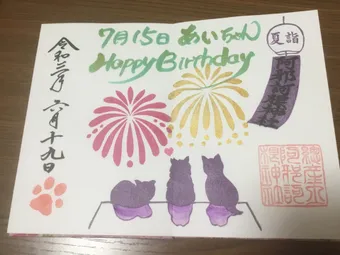 7月15日 あいちゃん
Happy Birthday
夏詣
阿邪訶根神社
令和三年 六月十九日